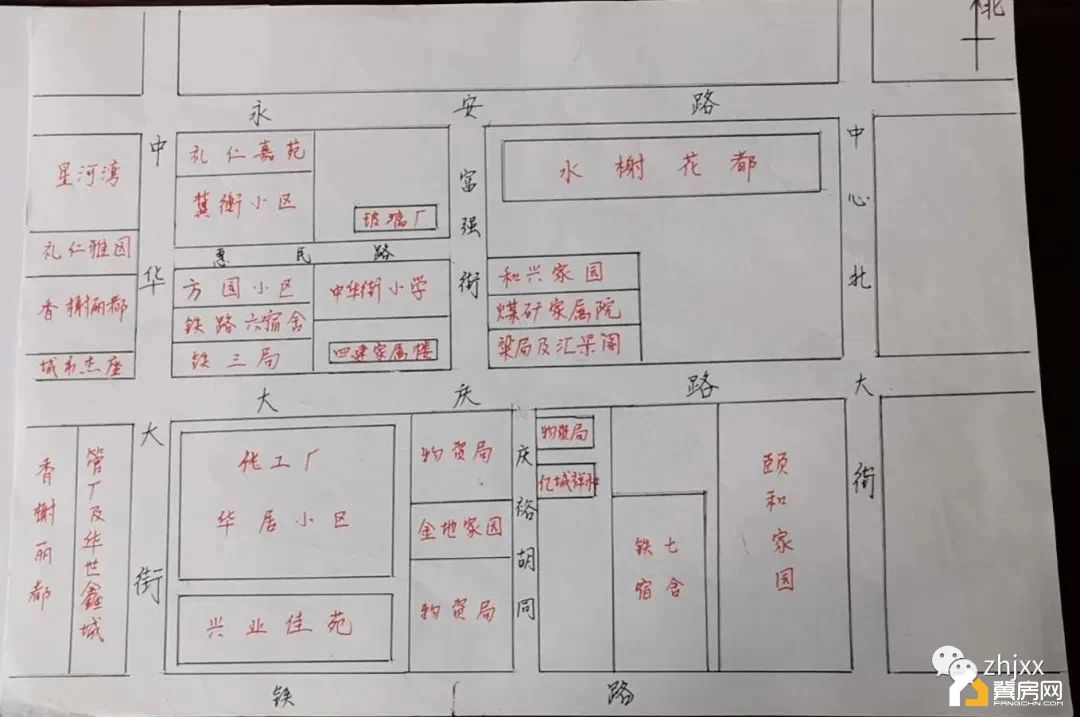 北
永安路
中华大街
富强街
中心北大街
星河湾
礼仁雅园
香榭丽都
城市杰座
礼仁嘉苑
冀衡小区
玻璃厂
惠民路
方园小区
铁路六宿舍
铁三局
中华街小学
四建家属楼
水榭花都
和兴家园
煤矿家属院
梁局及汇采阁
大庆路
香榭丽都
管厂及华世鑫城
化工厂
华居小区
兴业佳苑
物资局
金地家园
物资局
庆裕胡同
物资局
亿城祥和
铁七
宿舍
颐和家园
铁路
zhjxx
冀房网
FANGCHN.COM